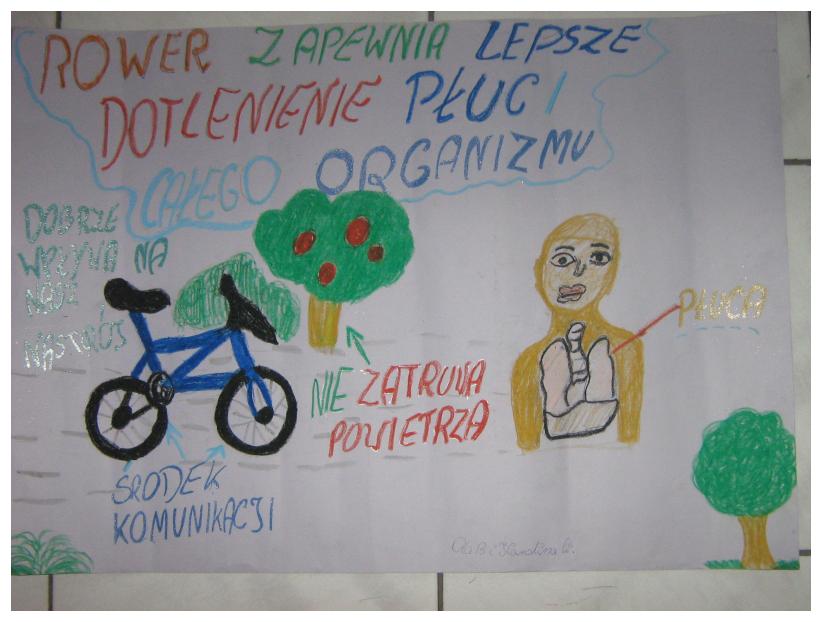 ROWER ZAPEWNIA LEPSZE
DOTLENIENIE PŁUC I
CAŁEGO ORGANIZMU
DOBRZE
WPŁYWA NA
NASZ
NASTRÓJ
NIE ZATRUWA
POWIETRZA
PŁUCA
ŚRODEK
KOMUNIKACJI